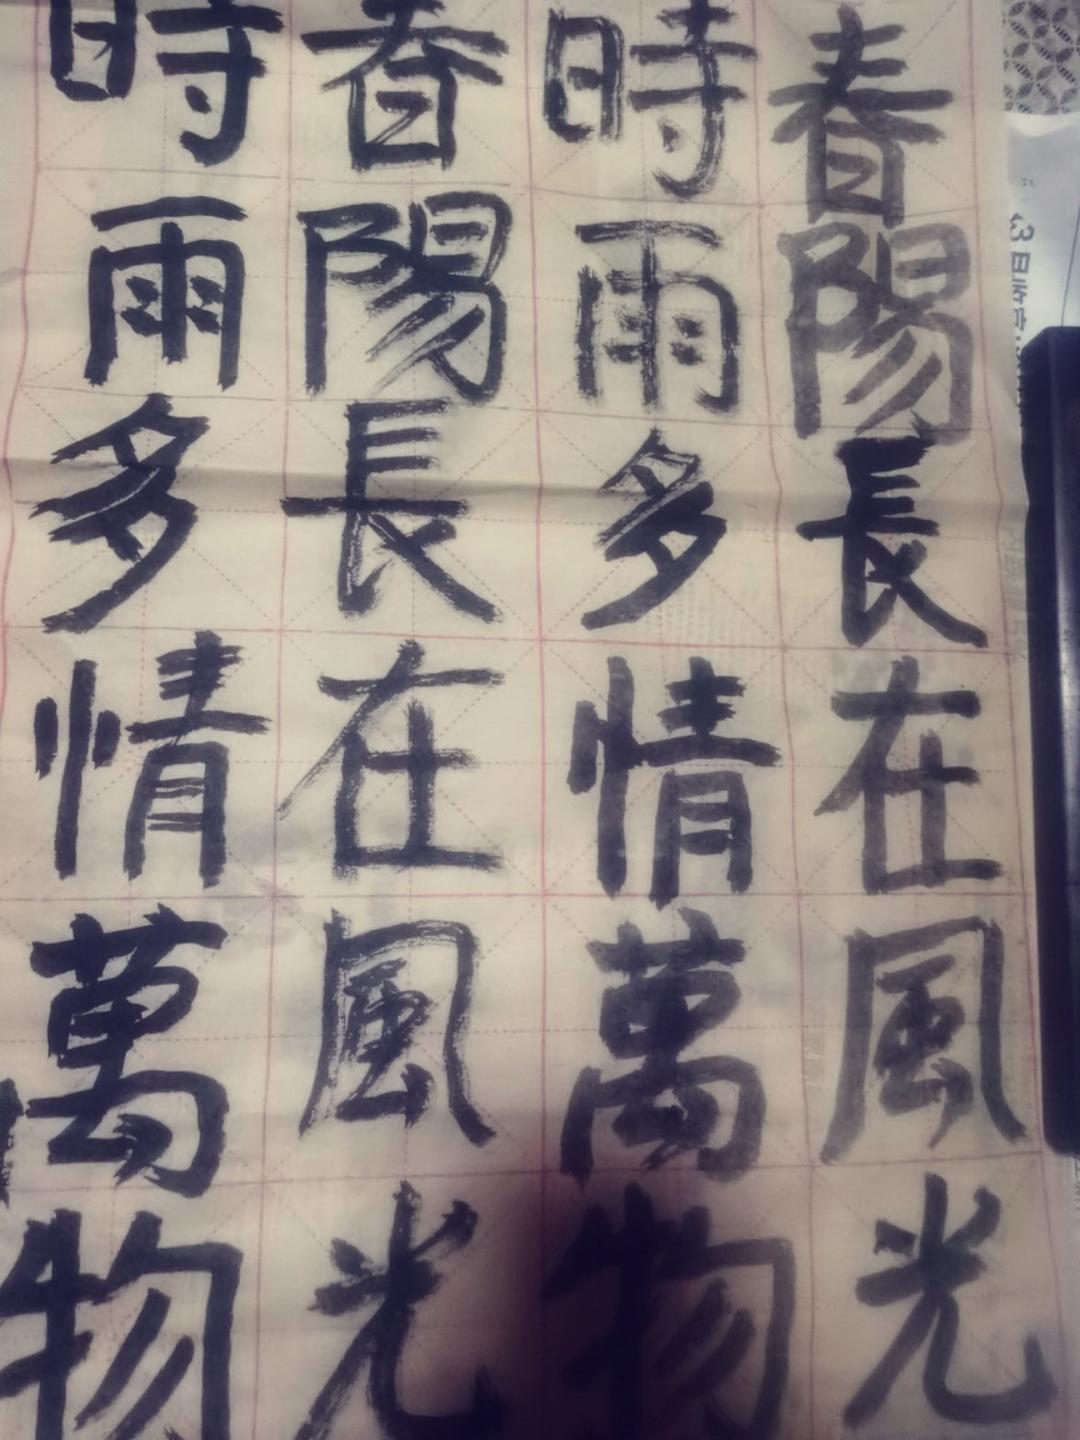 春陽長在風光
時雨多情萬物
春陽長在風光
時雨多情萬物